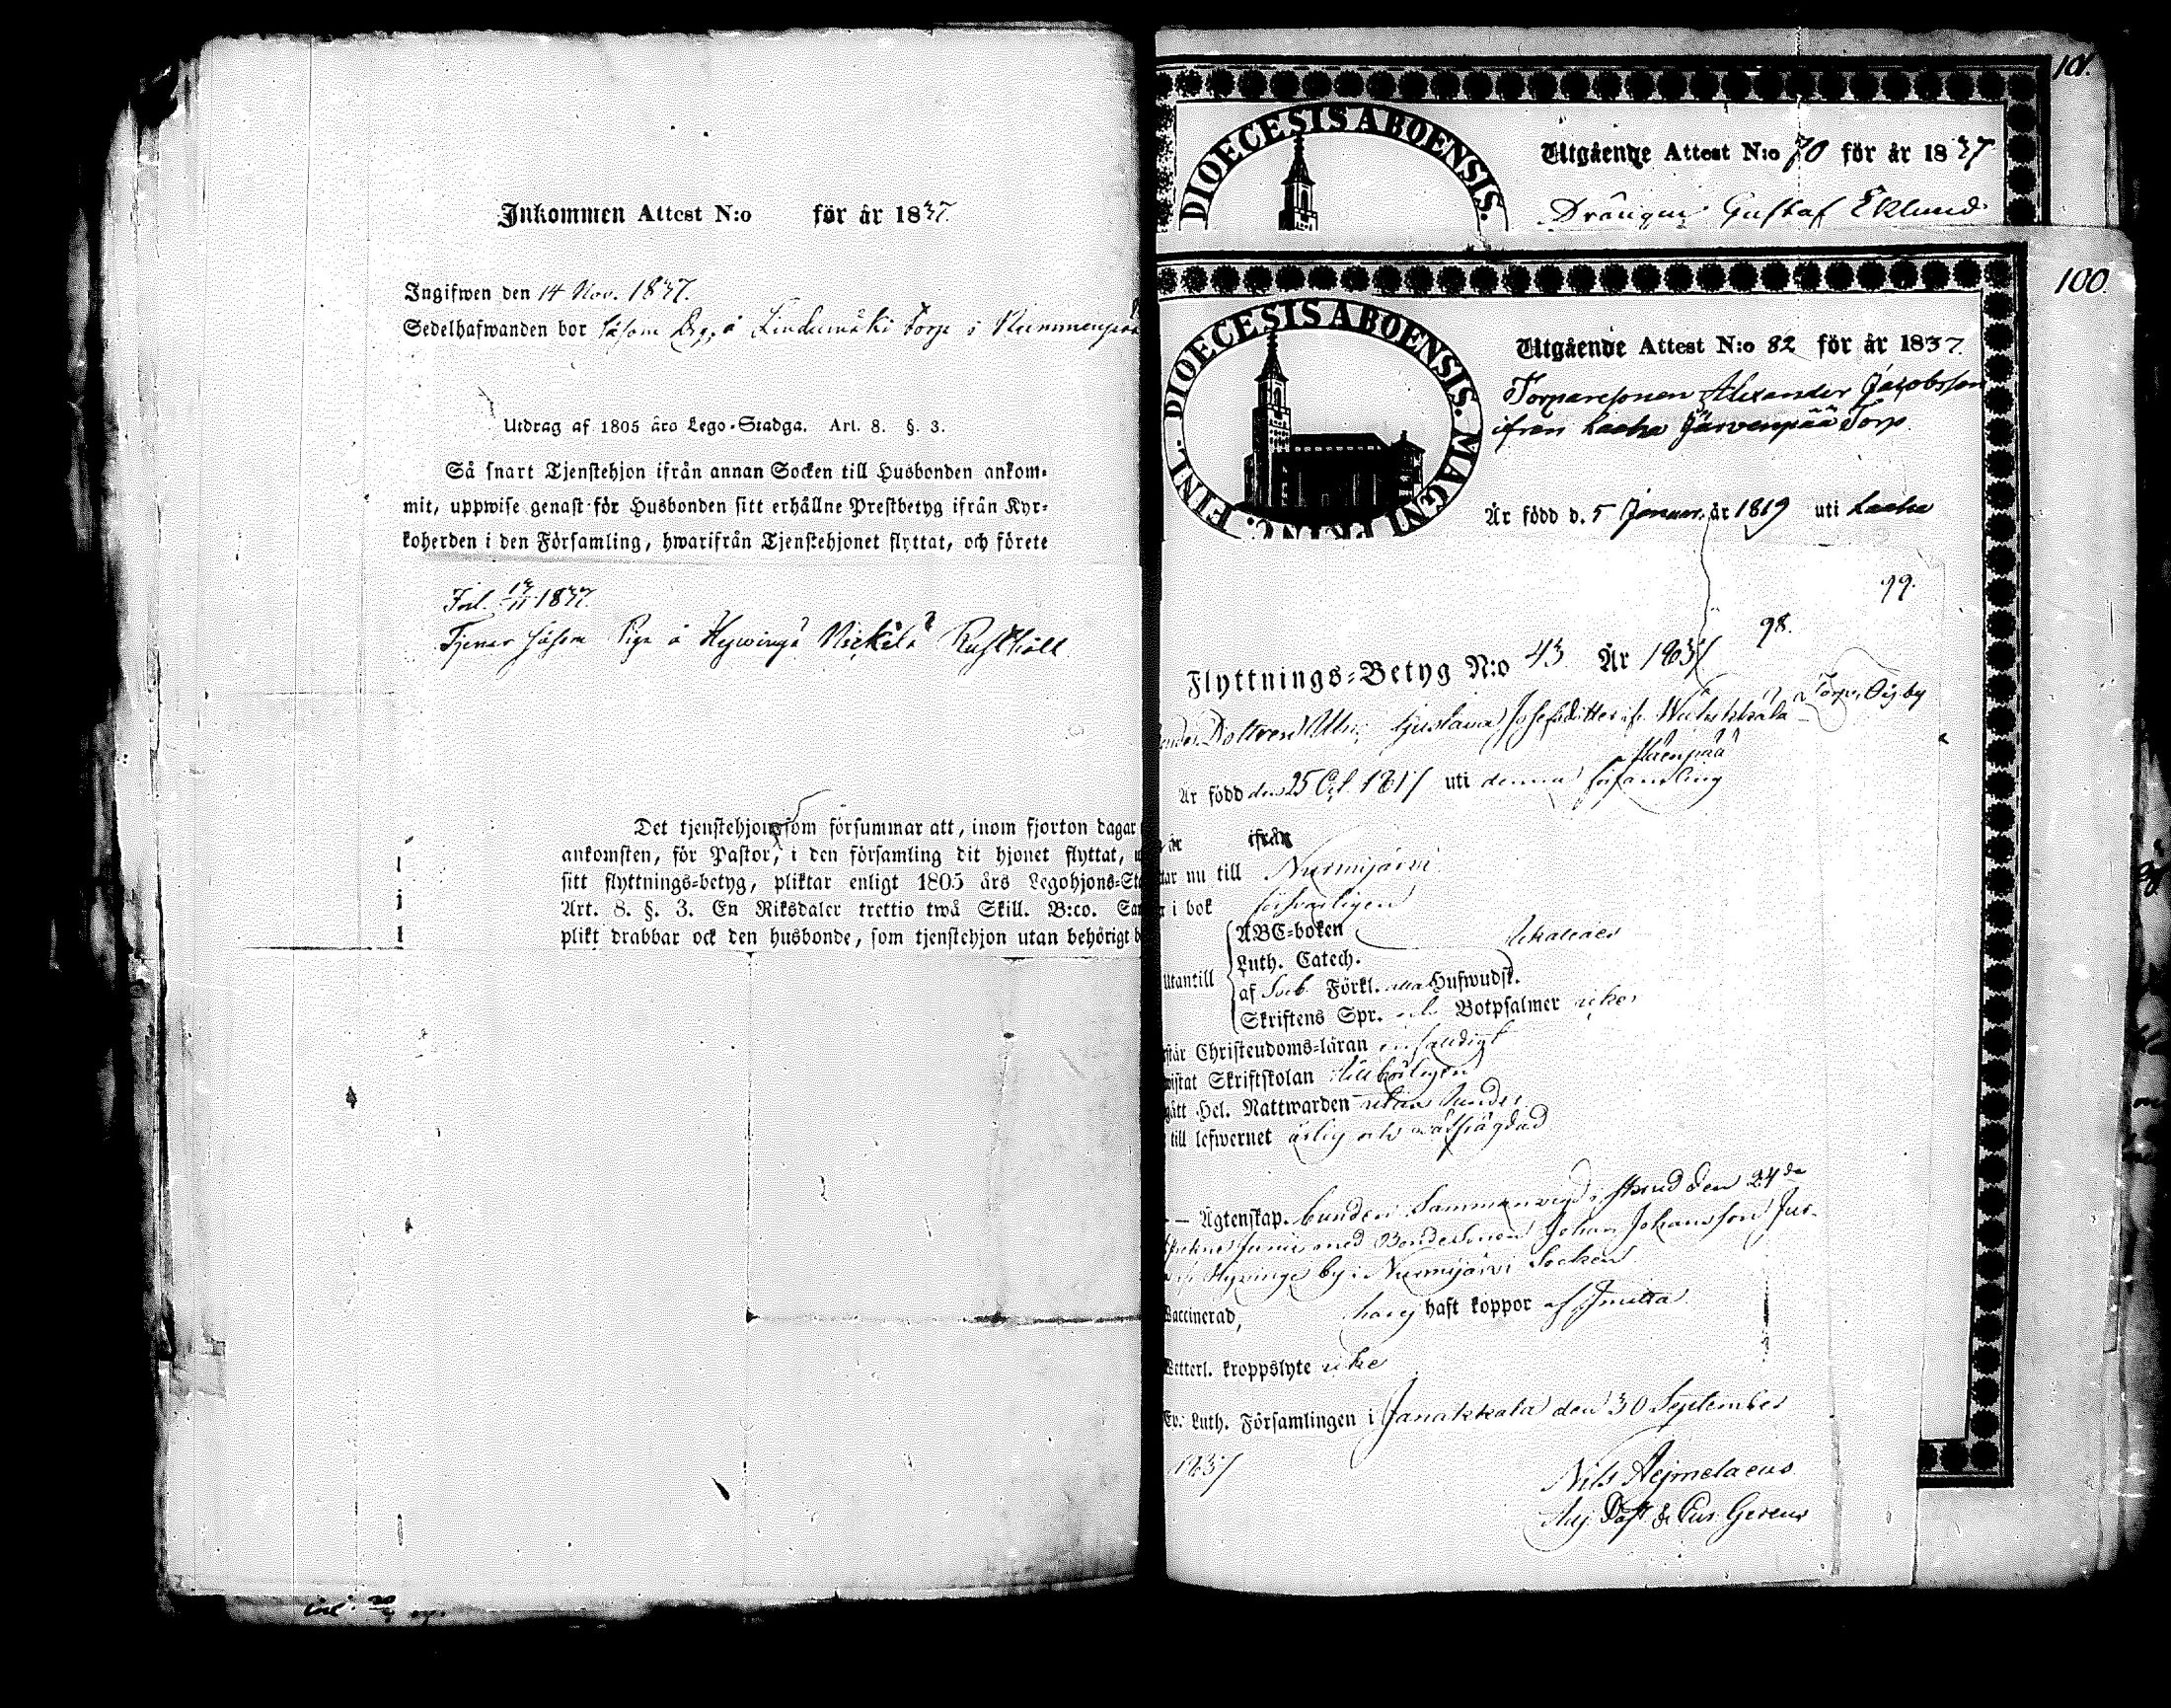 Inkommen Attest N:o för år 1837.
Ingifwen den 14 Nov. 1837.
Sedelhafwanden bor såsom Drg. å Lindumäki Torp i
Utdrag af 1805 års Lego-Stadga. Art. 8. §. 3.
Så snart Tjenstehjon ifrån annan Socken till Husbonden ankom-
mit, uppwise genast för Husbonden sitt erhållne Prestbetyg ifrån Kyr-
koherden i den Församling, hwarifrån Tjenstehjonet flyttat, och förete
1837.
Tjenar såsom Piga å Hywinge Rusthåll
Det tjenstehjon, som försummar att, inom fjorton dagar
ankomsten, för Pastor, i den församling dit hjonet flyttat, u
sitt flyttnings-betyg, pliktar enligt 1805 års Legohjons-Sta
Art. 8. §. 3. En Riksdaler trettio twå Skill. B:co. Sam
plikt drabbar ock den husbonde, som tjenstehjon utan behörigt b
101.
DIOECESIS ABOENSIS.
Utgående Attest N:o 70 för år 1837
Drängen Gustaf Eklund
100.
DIOECESIS ABOENSIS. MAGNI PRINC. FINL.
Utgående Attest N:o 82 för år 1837.
Torparesonen Alexander Jacobsson
ifrån Lacka Järvenpää Torp.
Är född d. 5 Januar. år 1819 uti
99.
98.
Flyttnings-Betyg N:o 43 År 1837
Dottren Ulr: Gustava Josefsdotter
Är född den 25 Oct. 1817 uti denna församling
är ifrån
tar nu till Nurmijärvi
i bok försvarligen
Utantill
ABC-boken
Luth. Catech.
af Sveb. Förkl. Hufwudst.
Skriftens Spr. och Botpsalmer icke
står Christendoms-läran enfaldigt
wistat Skriftskolan tillbörligen
gått Hel. Nattwarden utan hinder
till lefwernet ärlig och
— Ägtenskap. bunden den 24de
Junii med Bondesonen Johan Johansson
Hyvinge by i Nurmijärvi Socken
Vaccinerad, har ej haft koppor af Smitta.
Wetterl. kroppslyte icke
Ev: Luth. Församlingen i Janakkala den 30 September
1837
Nils Aejmelaeus
Adj. Past. & Cur. Gerens